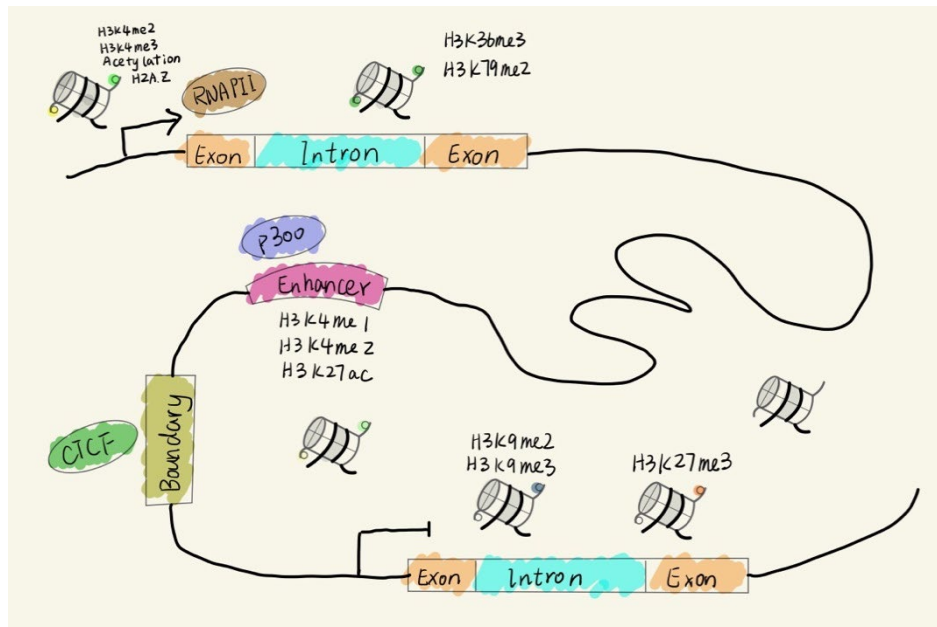 H3K4me2
H3K4me3
Acetylation
H2A.Z
RNAPII
H3K36me3
H3K79me2
Exon
Intron
Exon
p300
Enhancer
H3K4me1
H3K4me2
H3K27ac
CTCF
Boundary
H3K9me2
H3K9me3
H3K27me3
Exon
Intron
Exon